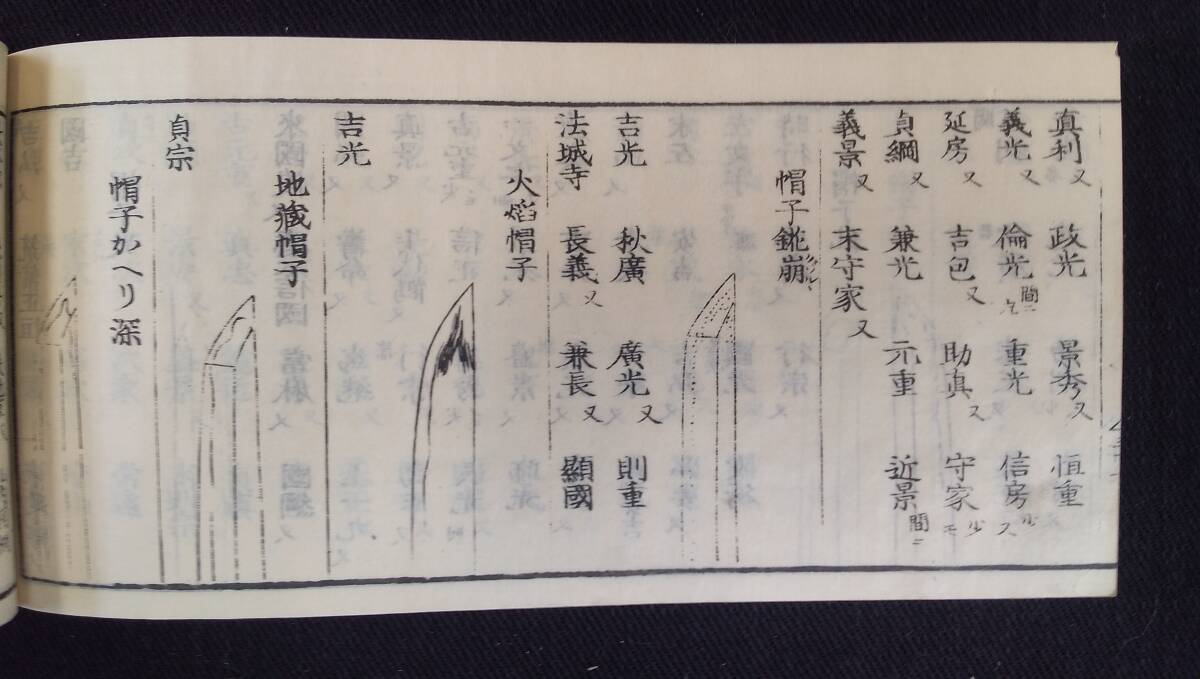 真利又 政光 景秀又 恒重
義光又 倫光間ニ 重光 信房少ス
延房又 吉包又 助真又 守家少モ
貞綱又 兼光 元重 近景間ニ
義景又 末守家又
帽子鋩崩
吉光 秋廣 廣光又 則重
法城寺 長義又 兼長又 顯國
火焔帽子
吉光
地藏帽子
貞宗
帽子かヘリ深
國吉